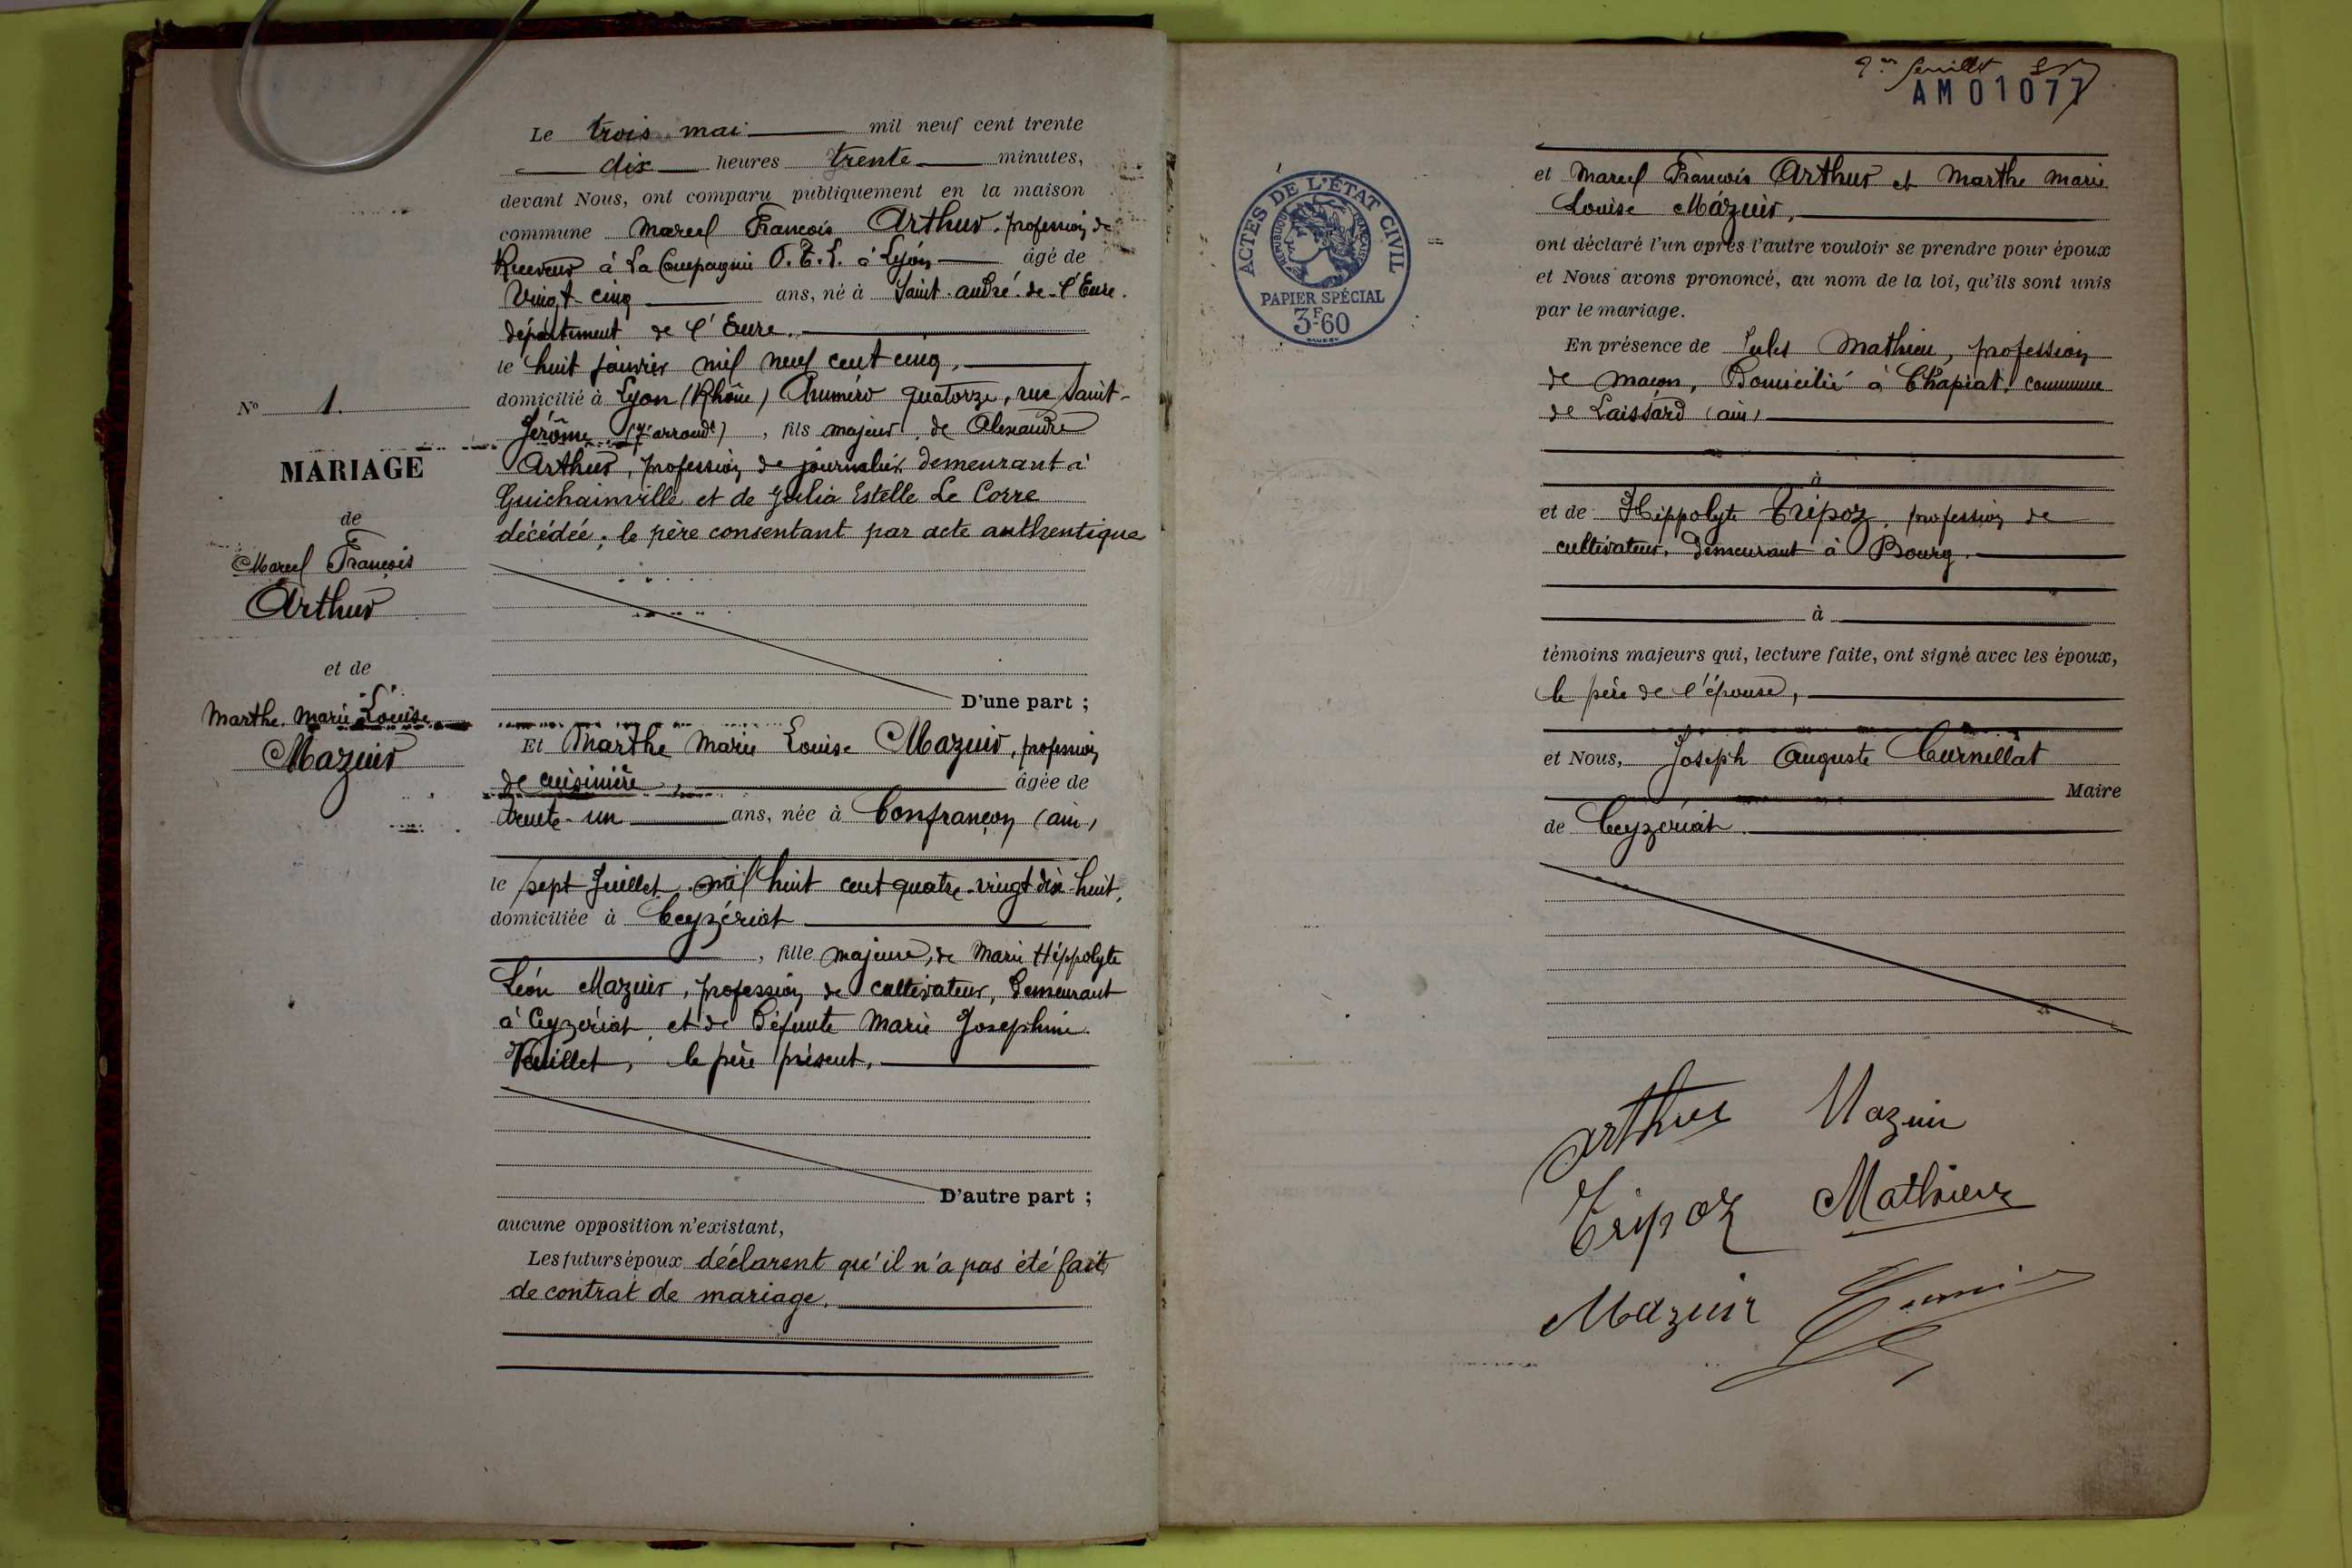 Le trois mai mil neuf cent trente
dix heures trente minutes,
devant Nous, ont comparu publiquement en la maison
commune Marcel François Arthur, profession de
Receveur à La Compagnie O.T.L. à Lyon âgé de
Vingt-cinq ans, né à Saint-André-de-l'Eure.
département de l'Eure.
le huit janvier mil neuf cent cinq,
domicilié à Lyon (Rhône) Numéro quatorze, rue Saint-
Jérôme (7e arrondt), fils majeur, de Alexandre
Arthur, profession de journalier demeurant à
Guichainville et de Julia Estelle Le Corre
décédée; le père consentant par acte authentique
D'une part ;
No 1.
MARIAGE
de
Marcel François
Arthur
et de
Marthe Marie Louise
Mazuir
Et Marthe Marie Louise Mazuir, profession
de cuisinière, âgée de
trente-un ans, née à Confrançon (ain)
le sept Juillet mil huit cent quatre-vingt dix-huit,
domiciliée à Ceyzériat
, fille majeure, de Marie Hippolyte
Léon Mazuir, profession de cultivateur, Demeurant
à Ceyzériat et de Défunte Marie Josephine
Vuillet, le père présent.
D'autre part ;
aucune opposition n'existant,
Les futurs époux déclarent qu'il n'a pas été fait
de contrat de mariage.
feuillet
AM01077
ACTES DE L'ÉTAT CIVIL
RÉPUBLIQUE FRANÇAISE
PAPIER SPÉCIAL
3F60
et Marcel François Arthur et Marthe Marie
Louise Mazuir,
ont déclaré l'un après l'autre vouloir se prendre pour époux
et Nous avons prononcé, au nom de la loi, qu'ils sont unis
par le mariage.
En présence de Jules Mathieu, profession
de maçon, Domicilié à Chapiat, commune
de Laissard (ain)
à
et de Hippolyte Tripoz, profession de
cultivateur, demeurant à Bourg.
à
témoins majeurs qui, lecture faite, ont signé avec les époux,
le père de l'épouse,
et Nous, Joseph Auguste Curnillat
Maire
de Ceyzériat.
Arthur Mazuir
Tripoz Mathieu
Mazuir